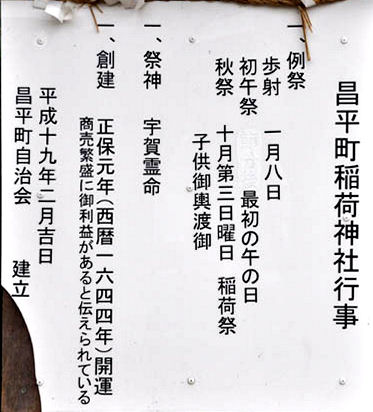 昌平町稲荷神社行事
一、例祭
歩射 一月八日
初午祭 最初の午の日
秋祭 十月第三日曜日 稲荷祭
子供御輿渡御
一、祭神 宇賀霊命
一、創建 正保元年(西暦一六四四年)開運
商売繁盛に御利益があると伝えられている
平成十九年二月吉日
昌平町自治会 建立